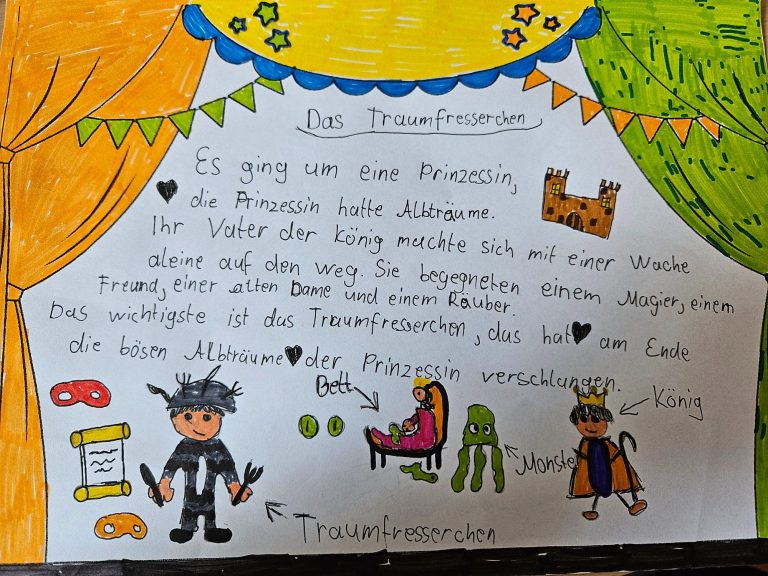 Das Traumfresserchen
Es ging um eine Prinzessin,
die Prinzessin hatte Albträume.
Ihr Vater der König machte sich mit einer Wache
aleine auf den weg. Sie begegneten einem Magier, einem
Freund, einer alten Dame und einem Räuber.
Das wichtigste ist das Traumfresserchen, das hat am Ende
die bösen Albträume der Prinzessin verschlangen.
Bett
König
Monster
Traumfresserchen